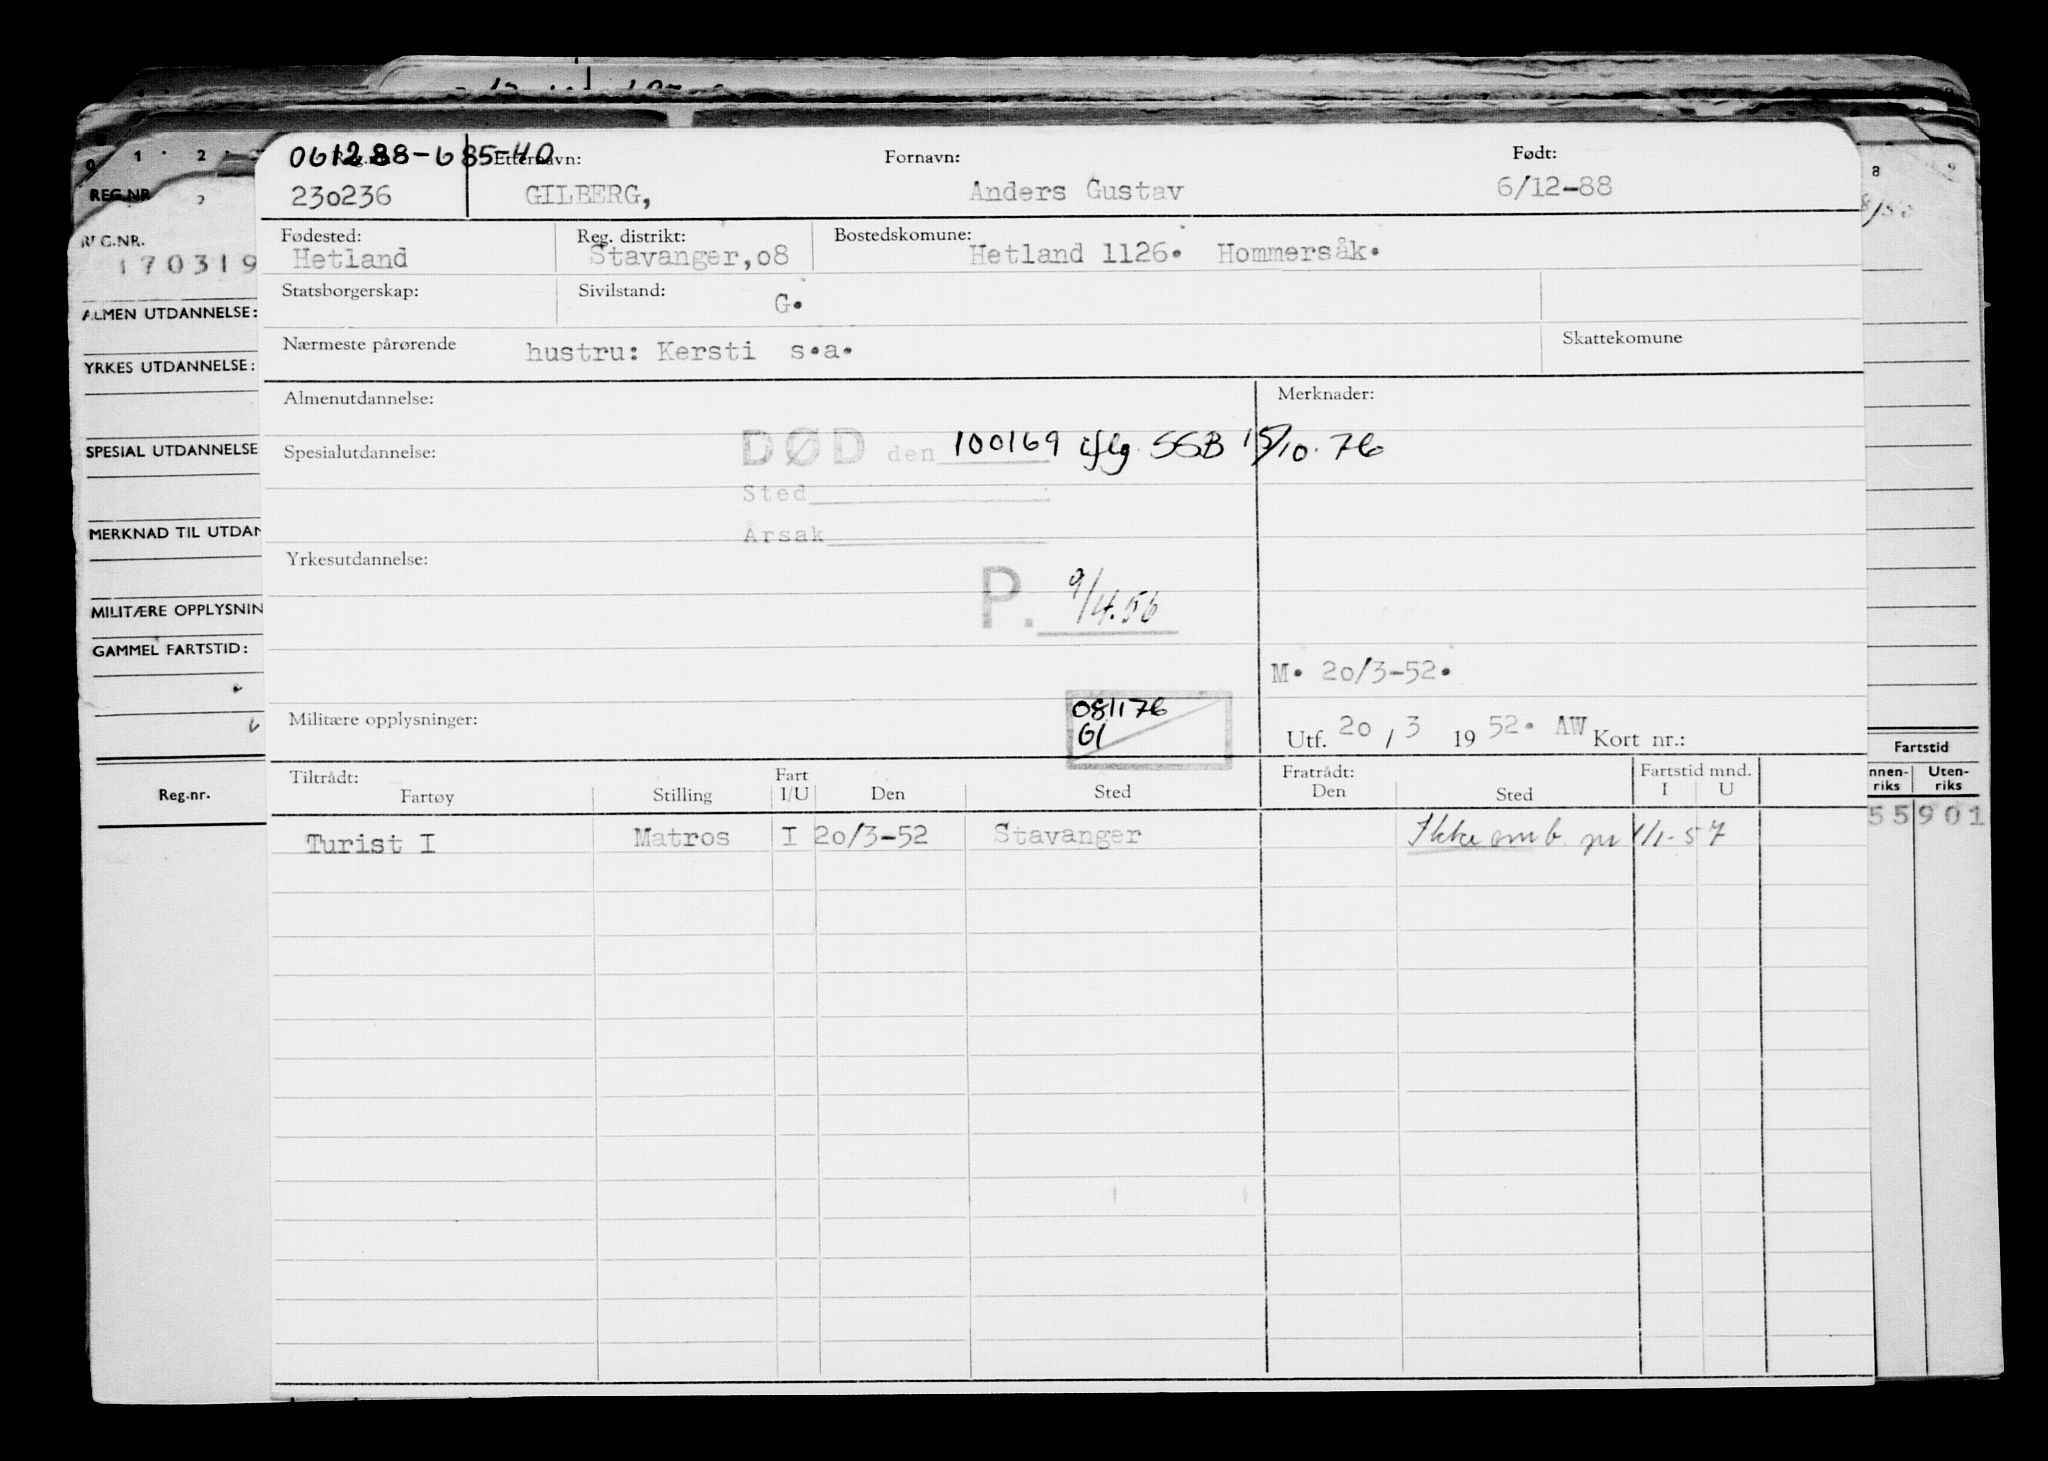 1 2
REG.NR
REG.NR.
170319
ALMEN UTDANNELSE:
YRKES UTDANNELSE:
SPESIAL UTDANNELSE
MERKNAD TIL UTDAN
MILITÆRE OPPLYSNIN
GAMMEL FARTSTID:
Reg.nr.
061288-685-40
Etternavn: Fornavn: Født:
230236 GILBERG, Anders Gustav 6/12-88
Fødested: Reg. distrikt: Bostedskomune:
Hetland Stavanger,o8 Hetland 1126. Hommersåk.
Statsborgerskap: Sivilstand: G.
Nærmeste pårørende hustru: Kersti s.a. Skattekomune
Almenutdannelse: Merknader:
Spesialutdannelse: DØD den 100169 iflg. SSB 15/10.76
Sted
Årsak
Yrkesutdannelse:
P. 9/4.56
M. 20/3-52.
081176
Militære opplysninger: Gl
Utf. 20 / 3 19 52. AW Kort nr.:
Tiltrådt: Fart Fratrådt: Fartstid mnd.
Fartøy Stilling I/U Den Sted Den Sted I U
Turist I Matros I 20/3-52 Stavanger Ikke omb. pr 1/1-57
8
Fartstid
nnen- Uten-
riks riks
55 901